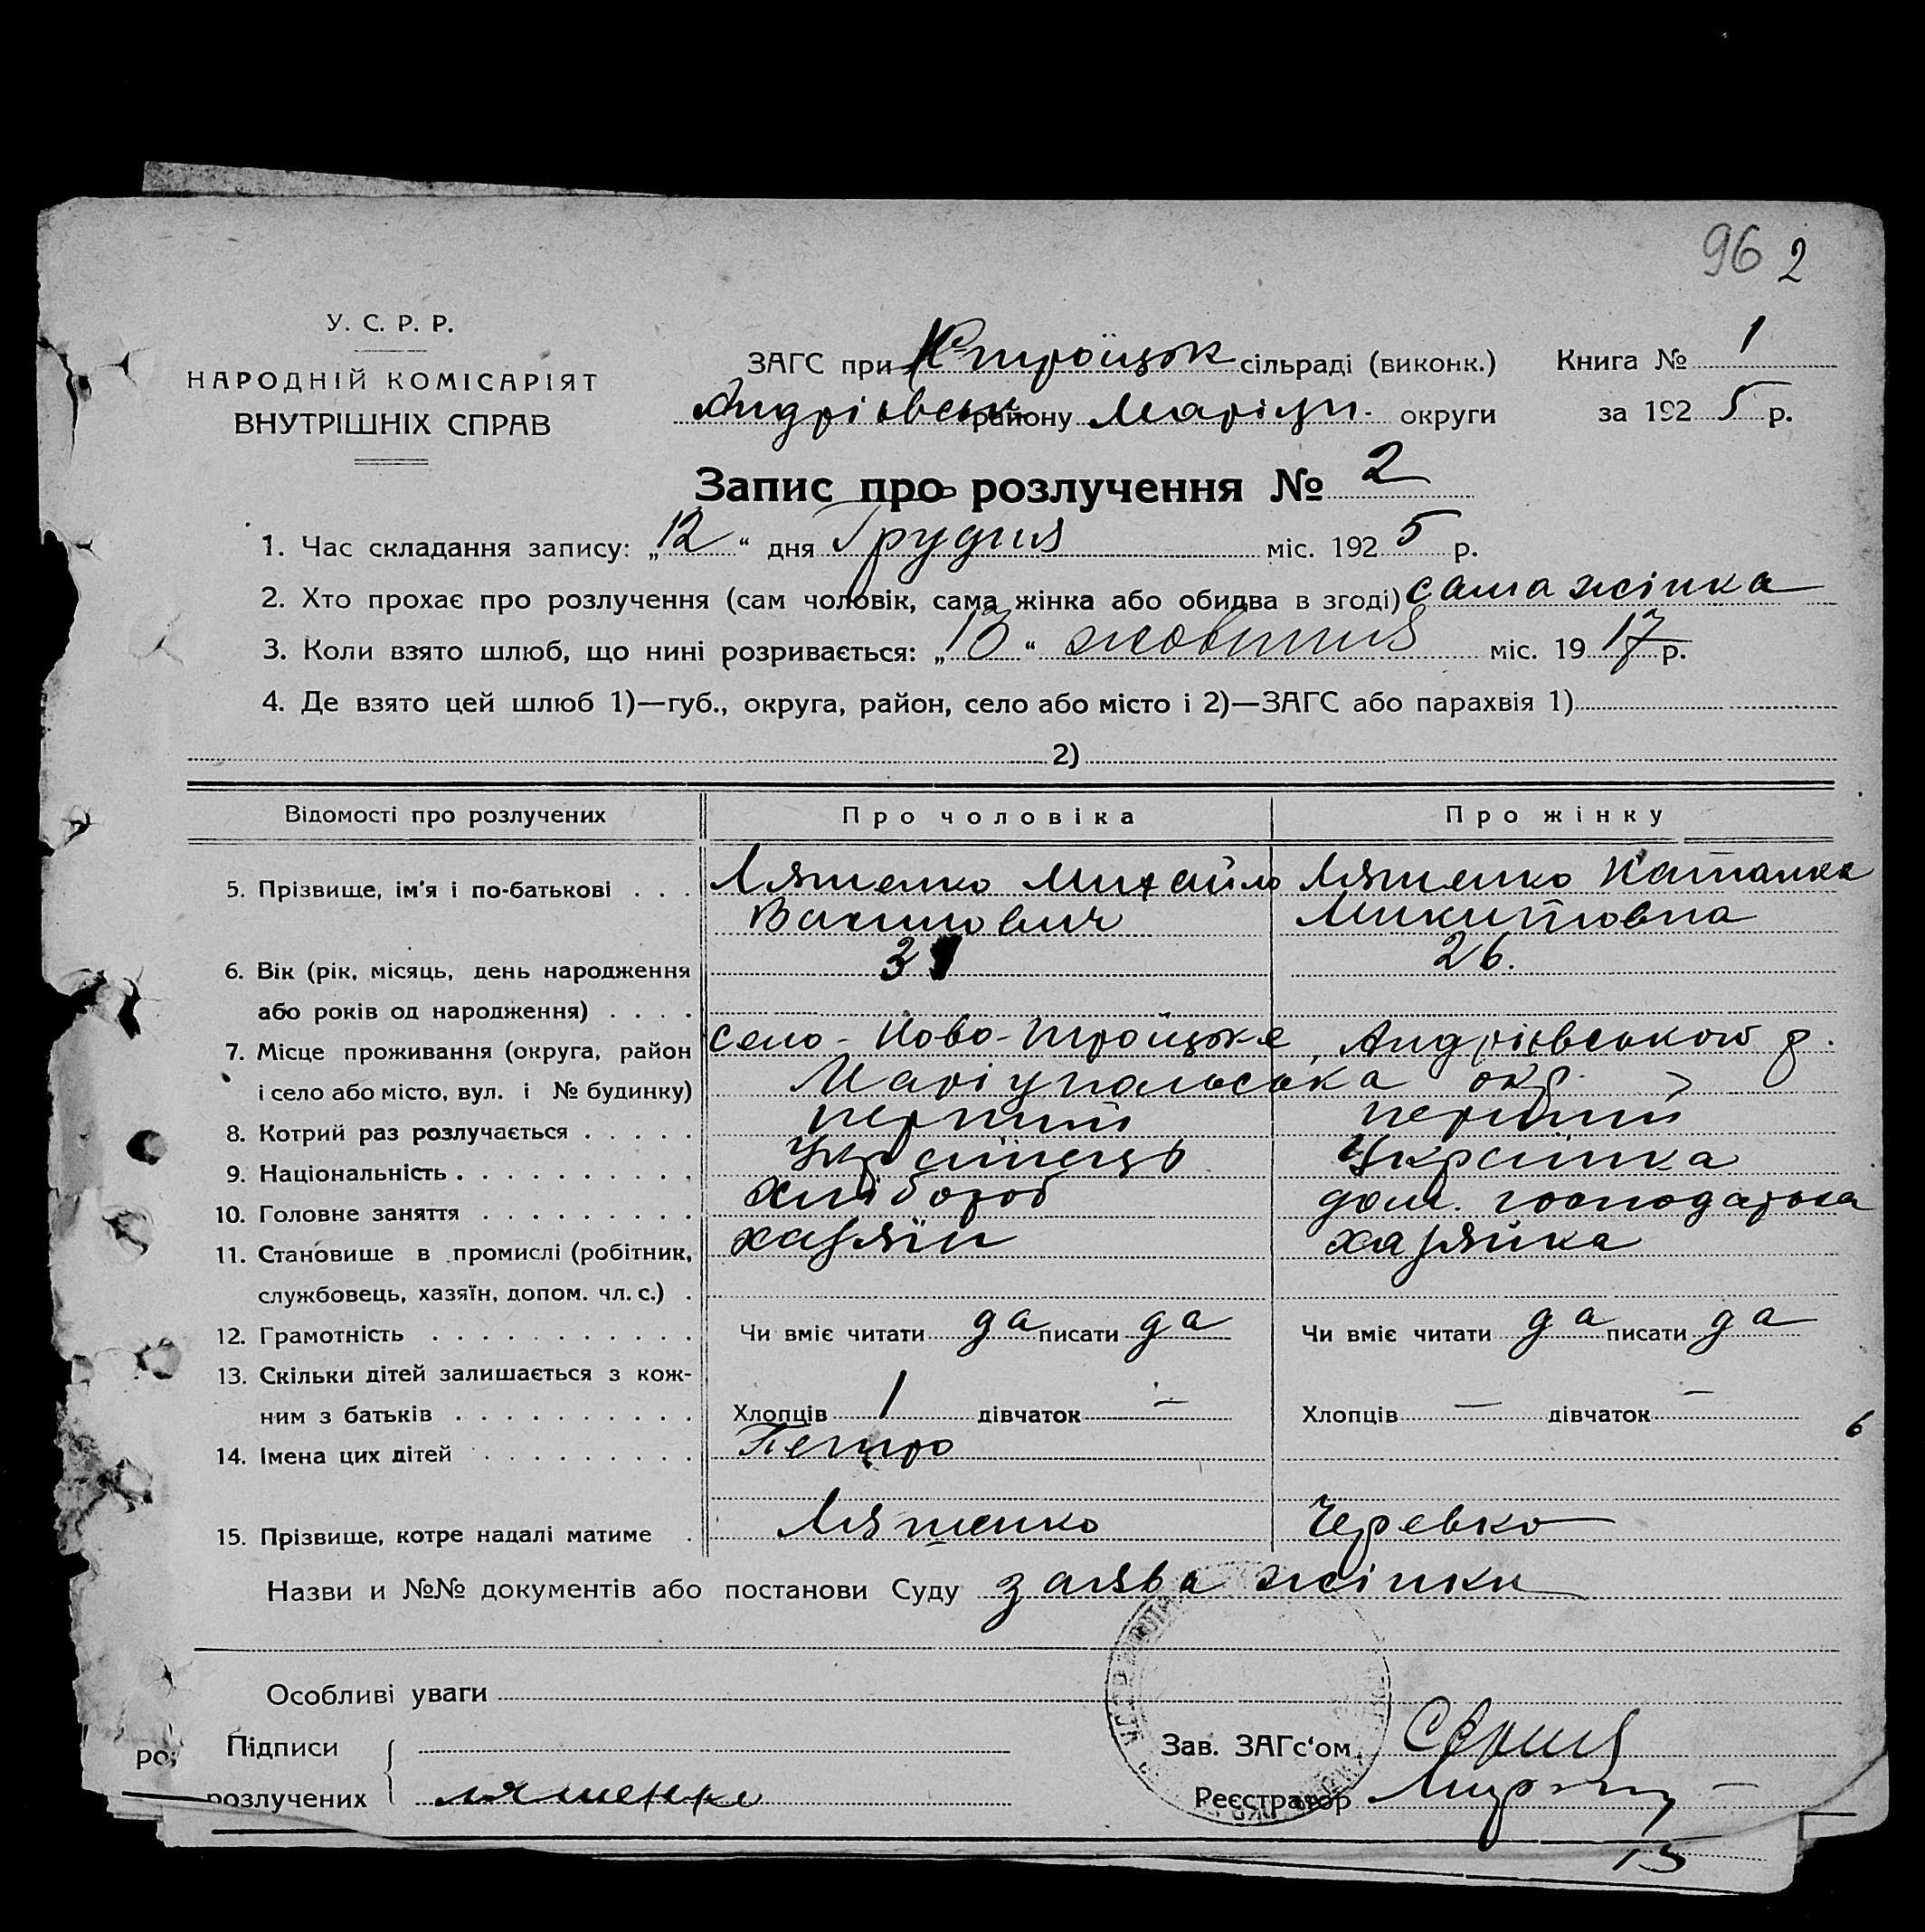 96 2
У. С. Р. Р.
НАРОДНІЙ КОМІСАРІЯТ
ВНУТРІШНІХ СПРАВ
ЗАГС при Н-троїцьк сільраді (виконк.) Книга № 1
Андріівськ району Маріуп. округи за 1925 р.
Запис про розлучення № 2
1. Час складання запису: „12“ дня Грудня міс. 1925 р.
2. Хто прохає про розлучення (сам чоловік, сама жінка або обидва в згоді) сама жінка
3. Коли взято шлюб, що нині розривається: „13“ жовтня міс. 1917 р.
4. Де взято цей шлюб 1)—губ., округа, район, село або місто і 2)—ЗАГС або парахвія 1)
2)
Відомості про розлучених Про чоловіка Про жінку
5. Прізвище, ім'я і по-батькові . . . Ляшенко Михайло Ляшенко
Микитовна
6. Вік (рік, місяць, день народження 31 26.
або років од народження) . . . .
7. Місце проживання (округа, район село - Ново-Троїцьке, Андріівського р.
і село або місто, вул. і № будинку) Маріупольська окр.
8. Котрий раз розлучається . . . . . перший перший
9. Національність . . . . . . . . . . Українець Українка
10. Головне заняття . . . . . . . . . хлібороб дом. господарька
11. Становище в промислі (робітник, хазяїн хазяйка
службовець, хазяїн, допом. чл. с.) .
12. Грамотність . . . . . . . . . . . Чи вміє читати да писати да Чи вміє читати да писати да
13. Скільки дітей залишається з кож-
ним з батьків . . . . . . . . . . Хлопців 1 дівчаток — Хлопців — дівчаток —
6
14. Імена цих дітей . . . . . . . . . Петро
15. Прізвище, котре надалі матиме . Ляшенко Черевко
Назви и №№ документів або постанови Суду заява жінки
Особливі уваги
Підписи
Зав. ЗАГс‘ом
ро
розлучених ляшенко Реєстратор
15